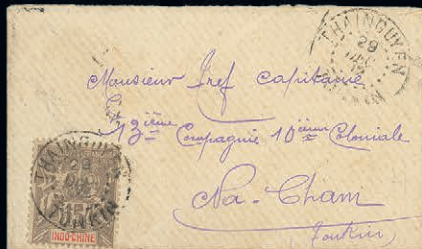 THAINGUYEN
29
Monsieur Iref capitaine
13ième Compagnie 10ième Coloniale
Na-Cham
Tonkin
THAINGUYEN
TONKIN
INDO-CHINE